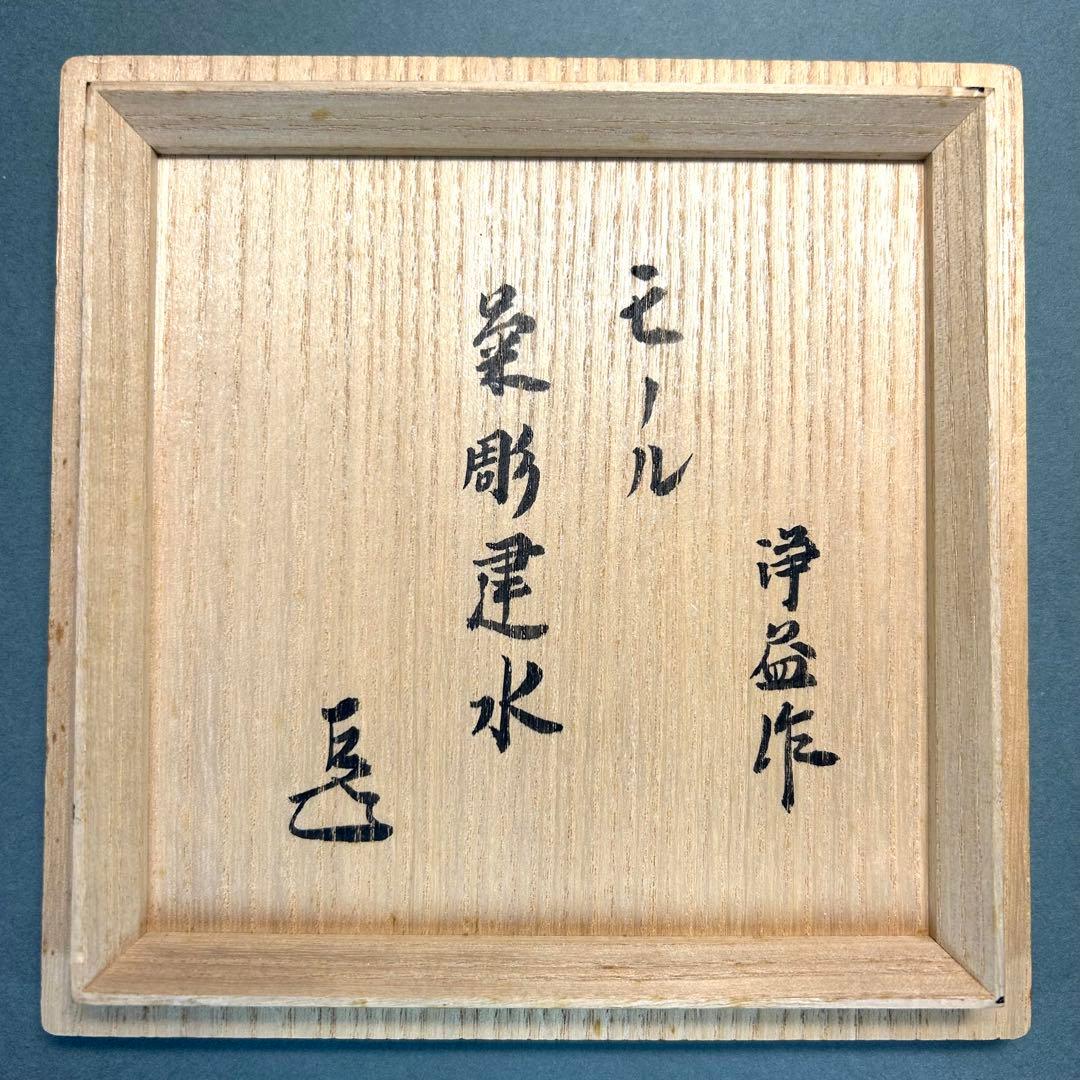 浄益作
モール
菊彫建水